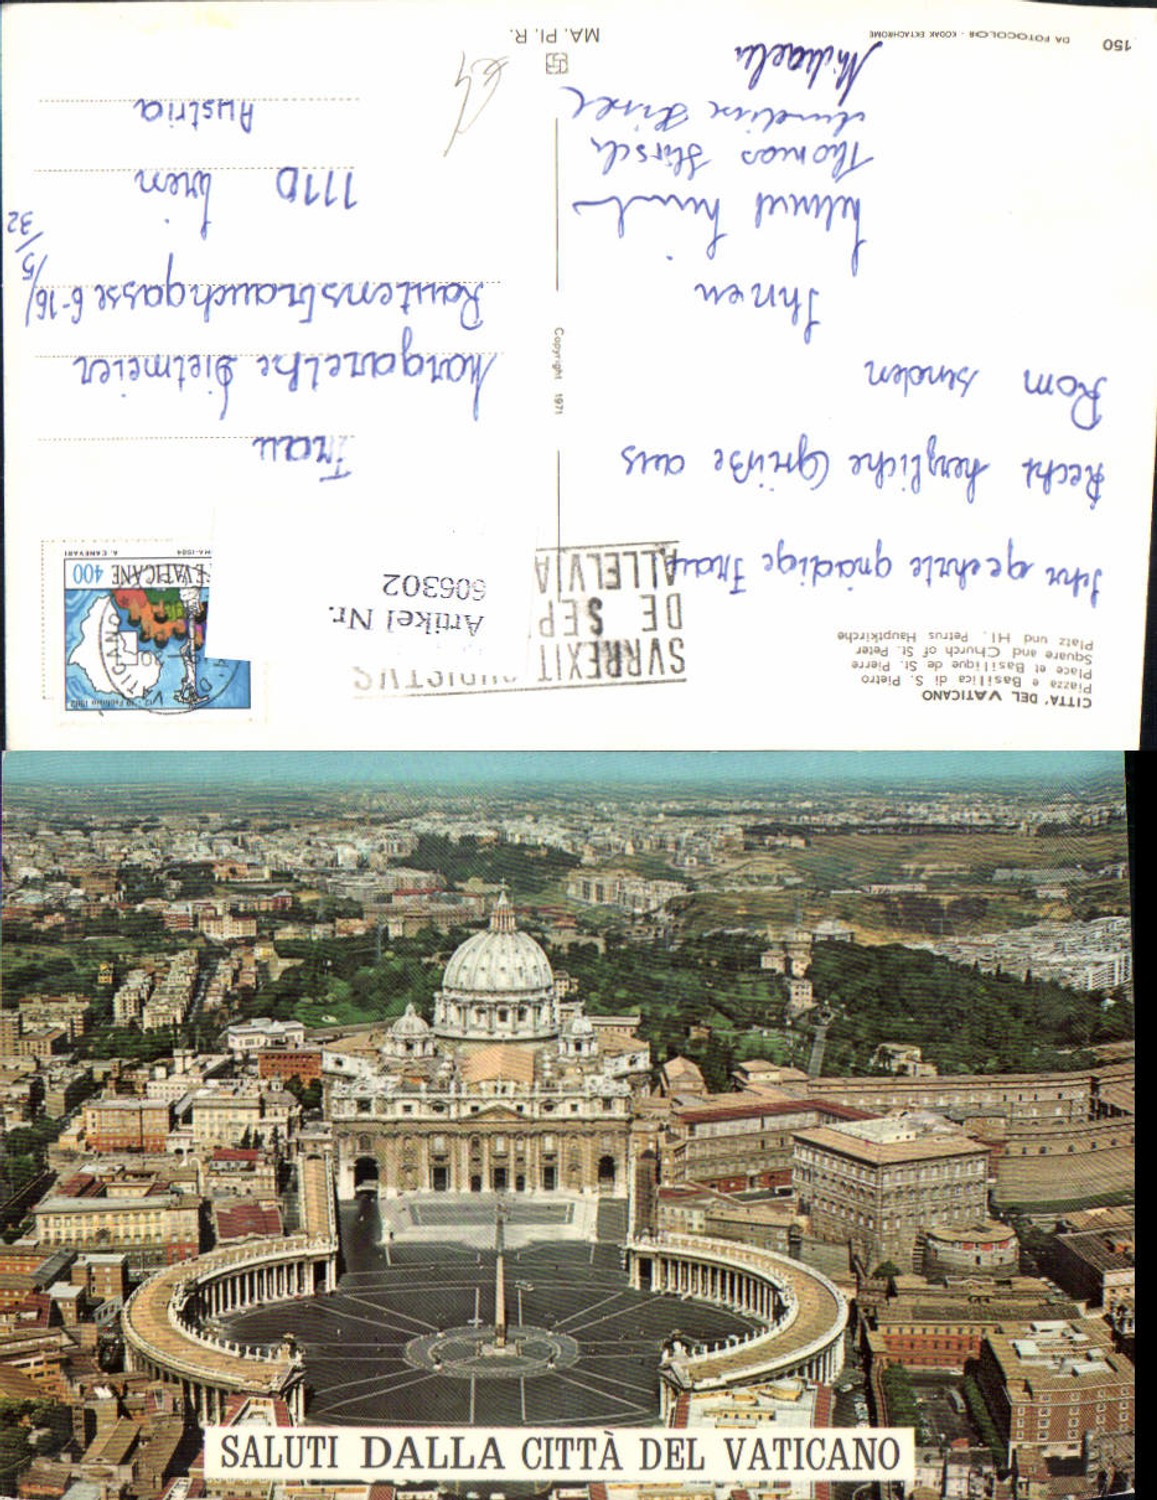 CITTA' DEL VATICANO
Piazza e Basilica di S. Pietro
Place et Basilique de St. Pierre
Square and Church of St. Peter
Platz und Hl. Petrus Hauptkirche
Sehr geehrte gnädige Frau
Recht herzliche Grüße aus
Rom senden
Ihnen
Helmut
Thomas Hirsch
Annelise
Michaela
150 DA FOTOCOLOR - KODAK EKTACHROME
Copyright 1971
MA. PI. R.
SVRREXIT
DE SEP
ALLELVIA
Artikel Nr.
606302
400
POSTE VATICANE
A. CANEVARI
Frau
Margarethe Dietmeier
Rautenstrauchgasse 6-16/
5/32
1110 Wien
Austria
SALUTI DALLA CITTÀ DEL VATICANO